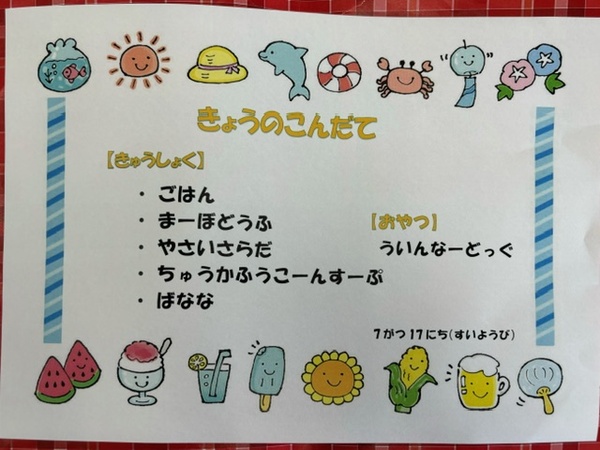 きょうのこんだて
【きゅうしょく】
・ ごはん
・ まーぼどうふ
・ やさいさらだ
・ ちゅうかふうこーんすーぷ
・ ばなな
【おやつ】
ういんなーどっぐ
7がつ17にち(すいようび)